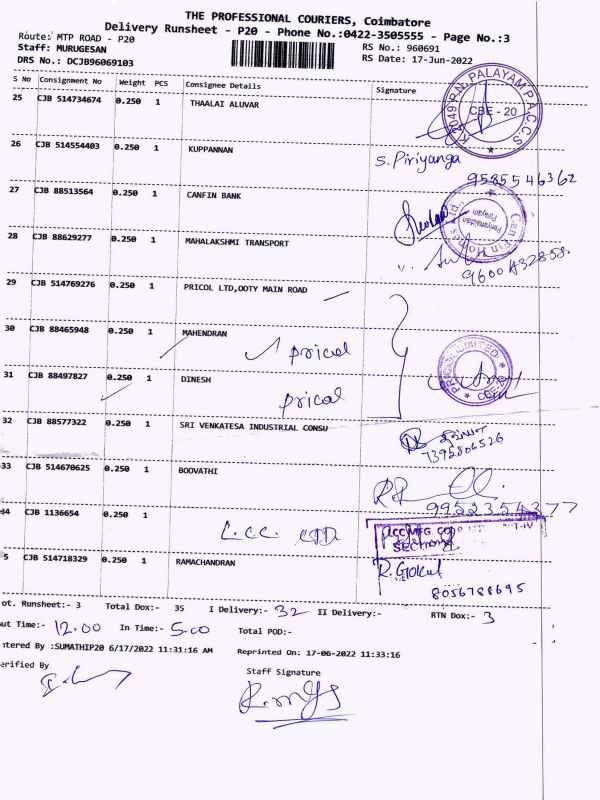 THE PROFESSIONAL COURIERS, Coimbatore
Delivery Runsheet - P20 - Phone No.:0422-3505555 - Page No.:3
Route: MTP ROAD - P20
RS No.: 960691
Staff: MURUGESAN
RS Date: 17-Jun-2022
DRS No.: DCJB96069103
S No Consignment No Weight PCS Consignee Details Signature
25 CJB 514734674 0.250 1 THAALAI ALUVAR
P.N. PALAYAM P.A.C.C.S
CBE - 20
26 CJB 514554403 0.250 1 KUPPANNAN
S. Piriyanga
9585546362
27 CJB 88513564 0.250 1 CANFIN BANK
Can Fin Homes Ltd.,
28 CJB 88629277 0.250 1 MAHALAKSHMI TRANSPORT
29 CJB 514769276 0.250 1 PRICOL LTD,OOTY MAIN ROAD
30 CJB 88465948 0.250 1 MAHENDRAN
prical
PRICOL LIMITED
31 CJB 88497827 0.250 1 DINESH
prical
32 CJB 88577322 0.250 1 SRI VENKATESA INDUSTRIAL CONSU
7392806526
33 CJB 514670625 0.250 1 BOOVATHI
9952354377
34 CJB 1136654 0.250 1
L.C.C.
SECTION
5 CJB 514718329 0.250 1 RAMACHANDRAN
R. Gokul
8056788695
ot. Runsheet:- 3 Total Dox:- 35 I Delivery:- 32 II Delivery:- RTN Dox:- 3
ut Time:- 12.00 In Time:- 5.00 Total POD:-
ntered By :SUMATHIP20 6/17/2022 11:31:16 AM Reprinted On: 17-06-2022 11:33:16
erified By
Staff Signature